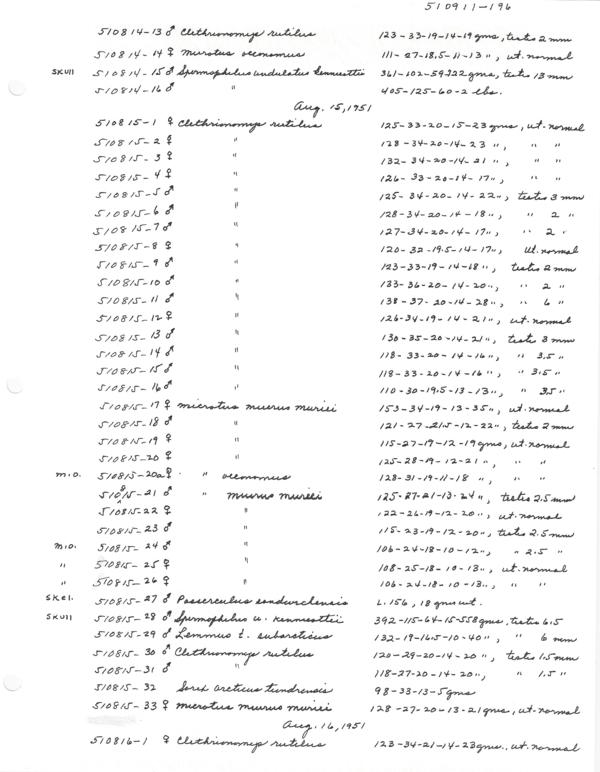 510911-196
510814-13 ♂ Clethrionomys rutilus 123-33-19-14-19 gms, testis 2 mm
510814-14 ♀ Microtus oeconomus 111-27-18.5-11-13 ", ut. normal
skull 510814-15 ♂ Spermophilus undulatus kennicottii 361-102-59-222 gms, testis 13 mm
510814-16 ♂ " 405-125-60-2 lbs.
Aug. 15, 1951
510815-1 ♀ Clethrionomys rutilus 125-33-20-15-23 gms, ut. normal
510815-2 ♀ " 128-34-20-14-23 ", " "
510815-3 ♀ " 132-34-20-14-21 ", " "
510815-4 ♀ " 126-33-20-14-17 ", " "
510815-5 ♂ " 125-34-20-14-22 ", testis 3 mm
510815-6 ♂ " 128-34-20-14-18 ", " 2 "
510815-7 ♂ " 127-34-20-14-17 ", " 2 "
510815-8 ♀ " 120-32-19.5-14-17 ", ut. normal
510815-9 ♂ " 123-33-19-14-18 ", testis 2 mm
510815-10 ♂ " 133-36-20-14-20 ", " 2 "
510815-11 ♂ " 138-37-20-14-28 ", " 6 "
510815-12 ♀ " 126-34-19-14-21 ", ut. normal
510815-13 ♂ " 130-35-20-14-21 ", testis 3 mm
510815-14 ♂ " 118-33-20-14-16 ", " 3.5 "
510815-15 ♂ " 118-33-20-14-16 ", " 3.5 "
510815-16 ♂ " 110-30-19.5-13-13 ", " 3.5 "
510815-17 ♀ microtus miurus muriei 153-34-19-13-35 ", ut. normal
510815-18 ♂ " 121-27-21.5-12-22 ", testis 2 mm
510815-19 ♀ " 115-27-19-12-19 gms, ut. normal
510815-20 ♀ " 125-28-19-12-21 ", " "
m.o. 510815-20a ♀ " oeconomus 128-31-19-11-18 ", " "
510815-21 ♂ " miurus muriei 125-27-21-13-24 ", testis 2.5 mm
510815-22 ♀ " 122-26-19-12-20 ", ut. normal
510815-23 ♂ " 115-23-19-12-20 ", testis 2.5 mm
m.o. 510815-24 ♂ " 106-24-18-10-12 ", " 2.5 "
" 510815-25 ♀ " 108-25-18-10-13 ", ut. normal
" 510815-26 ♀ " 106-24-18-10-13 ", " "
skel. 510815-27 ♂ Passerculus sandwichensis L. 156, 18 gms wt.
skull 510815-28 ♂ Spermophilus u. kennicottii 392-115-64-15-558 gms, testis 6.5
510815-29 ♂ Lemmus t. subarcticus 132-19-16.5-10-40 ", " 6 mm
510815-30 ♂ Clethrionomys rutilus 120-29-20-14-20 ", testis 1.5 mm
510815-31 ♂ " 118-27-20-14-20 ", " 1.5 "
510815-32 Sorex arcticus tundrensis 98-33-13-5 gms
510815-33 ♀ microtus miurus muriei 128-27-20-13-21 gms, ut. normal
Aug. 16, 1951
510816-1 ♀ Clethrionomys rutilus 123-34-21-14-23 gms, ut. normal